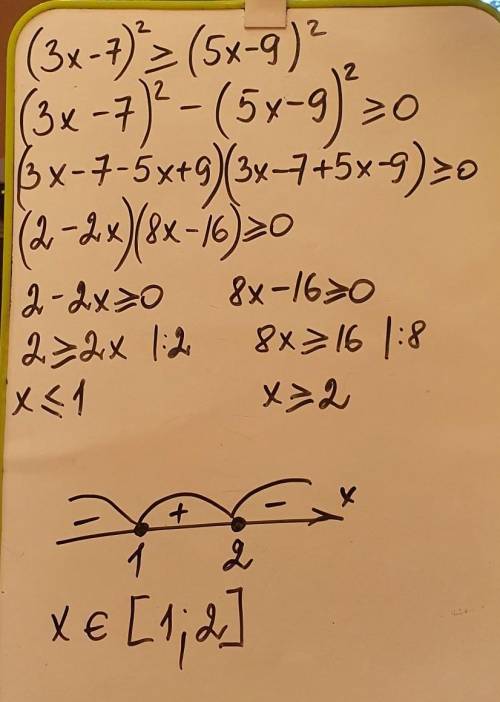 (3x-7)² ≥ (5x-9)²
(3x-7)² - (5x-9)² ≥ 0
(3x-7-5x+9)(3x-7+5x-9) ≥ 0
(2-2x)(8x-16) ≥ 0
2-2x ≥ 0 8x-16 ≥ 0
2 ≥ 2x |:2 8x ≥ 16 |:8
x ≤ 1 x ≥ 2
- + - x
1 2
x ∈ [1;2]